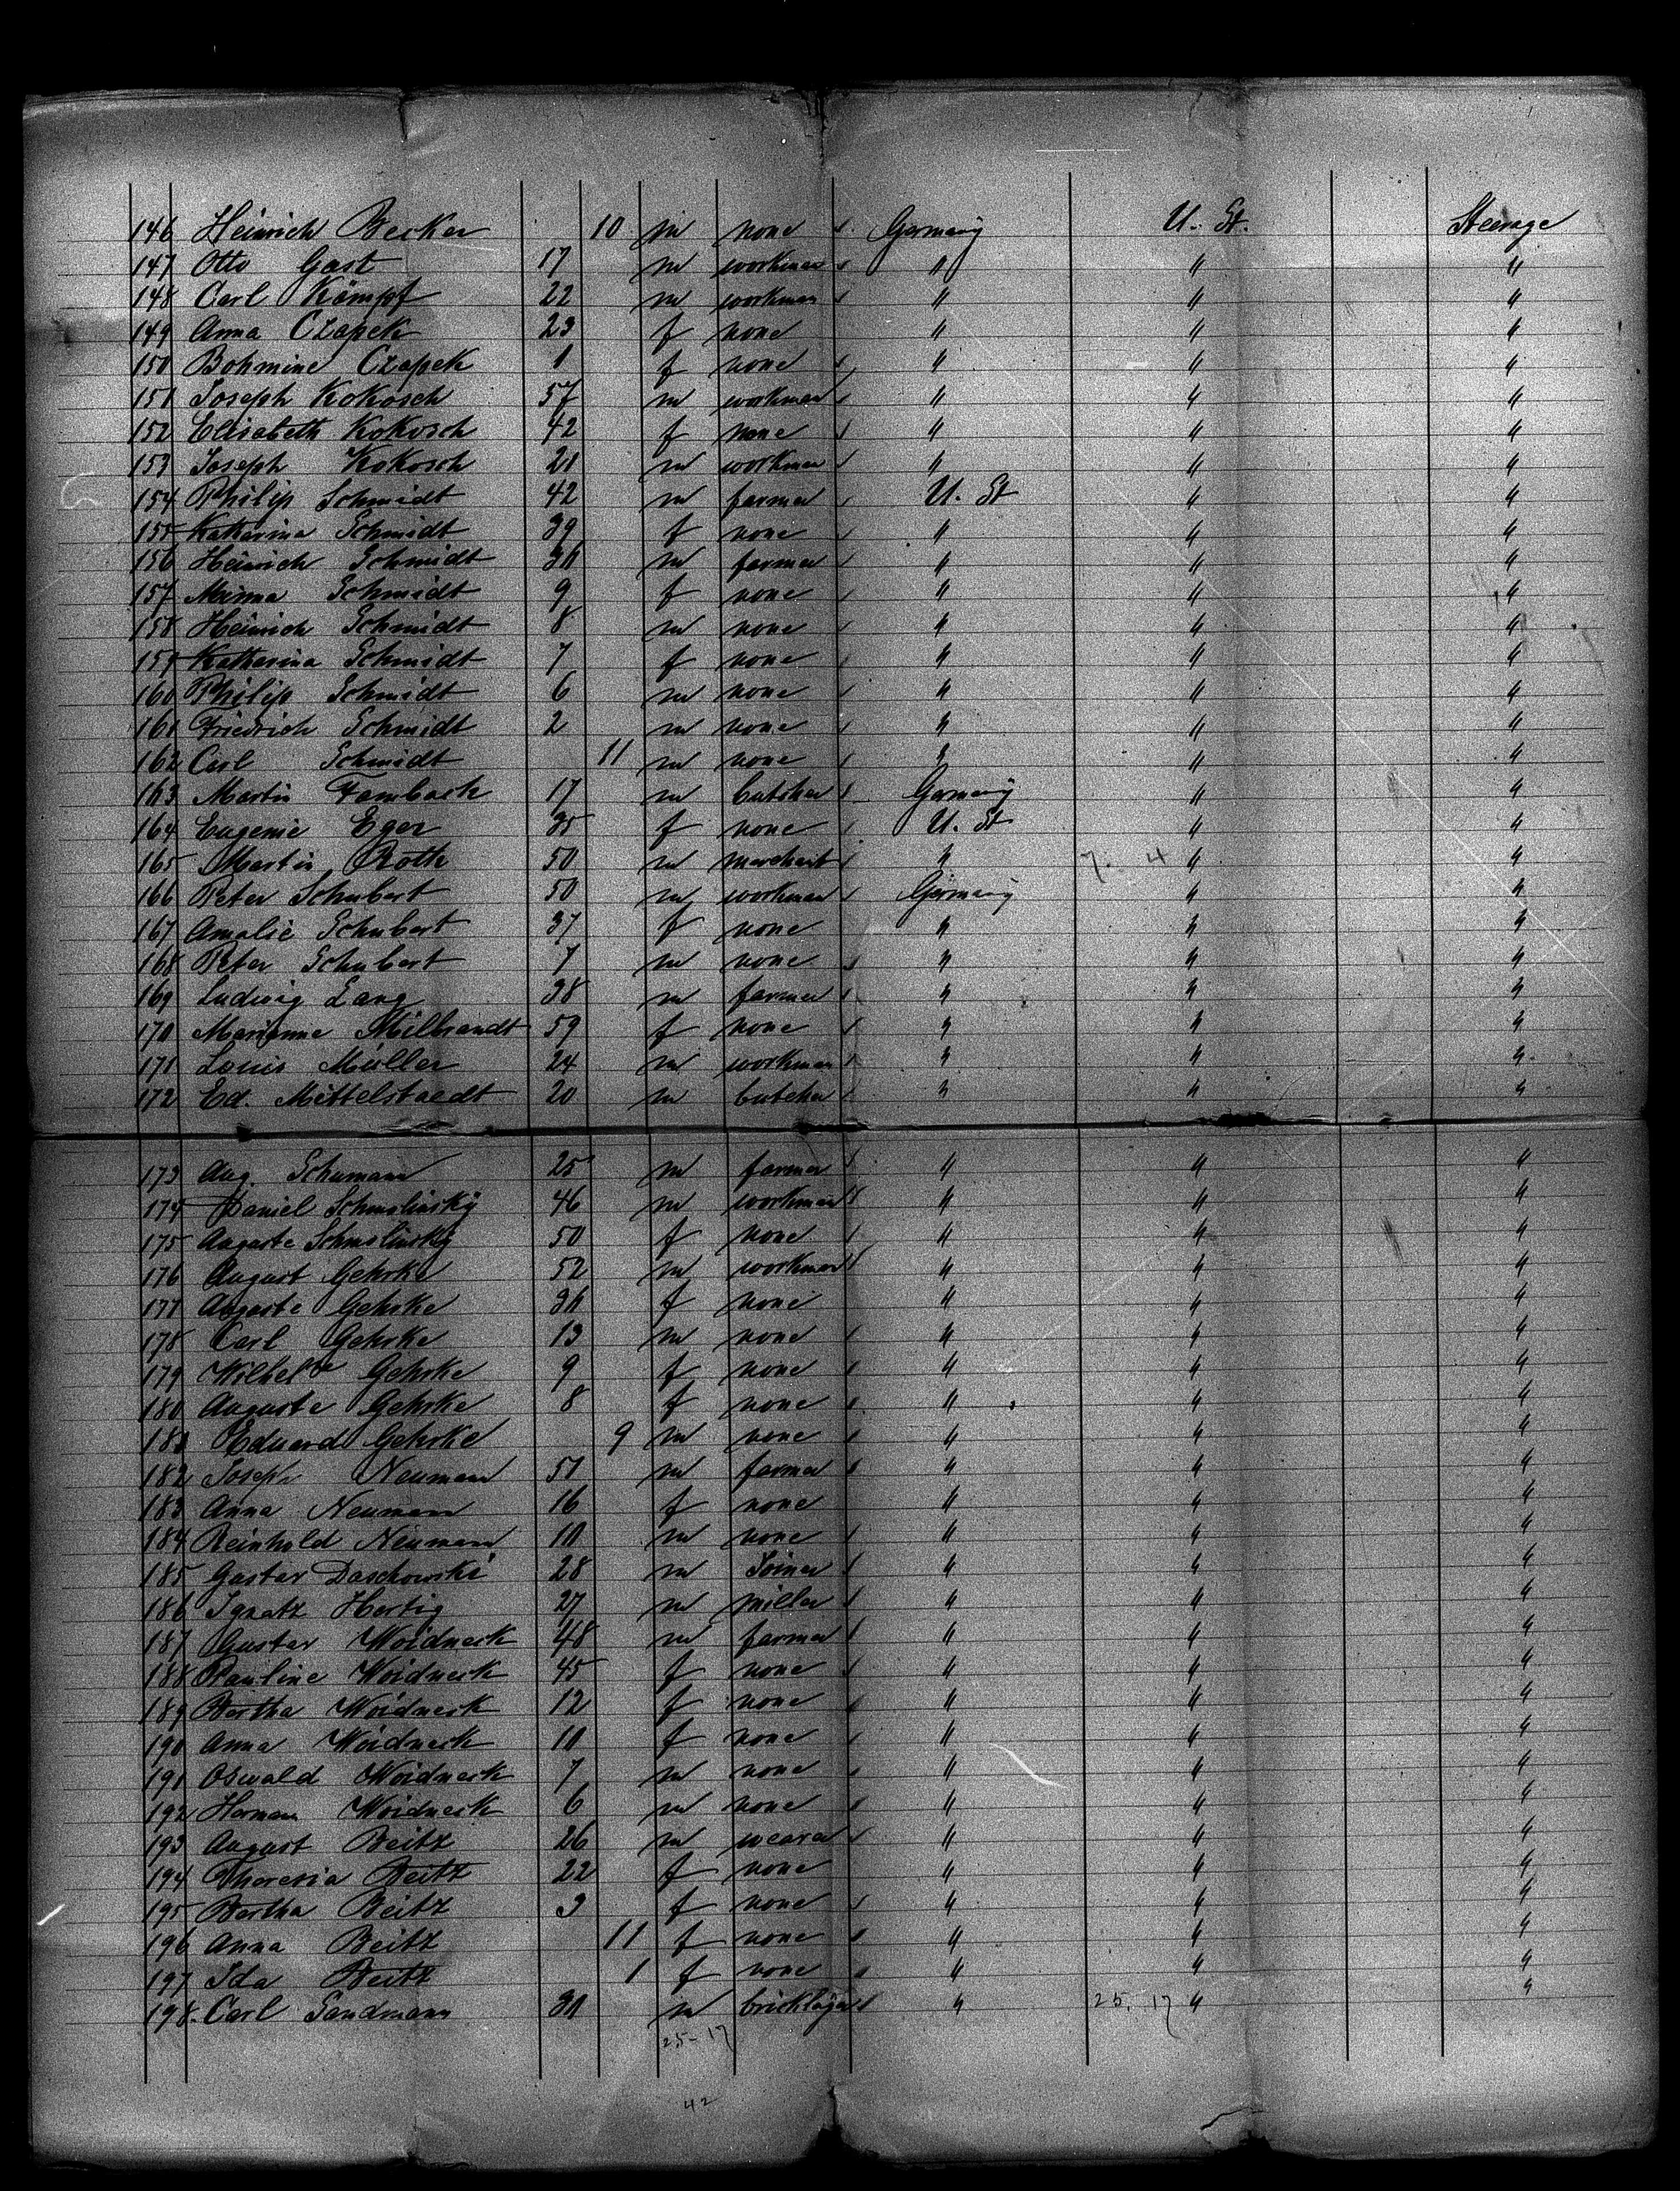 146 Heinrich Becker 10 m none Germany U. St. Steerage
147 Otto Gast 17 m workman " " "
148 Carl Kämpf 22 m workman " " "
149 Anna Czapek 23 f none " " "
150 Bohmine Czapek 1 f none " " "
151 Joseph Kokosch 57 m workman " " "
152 Elisabeth Kokosch 42 f none " " "
153 Joseph Kokosch 21 m workman " " "
154 Philip Schmidt 42 m farmer U. St " "
155 Katharina Schmidt 39 f none " " "
156 Heinrich Schmidt 30 m farmer " " "
157 Minna Schmidt 9 f none " " "
158 Heinrich Schmidt 8 m none " " "
159 Katharina Schmidt 7 f none " " "
160 Philip Schmidt 6 m none " " "
161 Friedrich Schmidt 2 m none " " "
162 Carl Schmidt 11 m none " " "
163 Martin Fambach 17 m butcher Germany " "
164 Eugenie Eger 35 f none U. St " "
165 Martin Roth 50 m merchant " 7. 4 " "
166 Peter Schubert 50 m workman Germany " "
167 Amalie Schubert 37 f none " " "
168 Peter Schubert 7 m none " " "
169 Ludwig Lang 38 m farmer " " "
170 Marianne Milbrandt 59 f none " " "
171 Louis Müller 24 m workman " " "
172 Ed. Mittelstaedt 20 m butcher " " "
173 Aug. Schumann 25 m farmer " " "
174 Daniel Schmolinsky 46 m workman " " "
175 Auguste Schmolinsky 50 f none " " "
176 August Gehrke 52 m workman " " "
177 Auguste Gehrke 30 f none " " "
178 Carl Gehrke 13 m none " " "
179 Wilhele Gehrke 9 f none " " "
180 Auguste Gehrke 8 f none " " "
181 Eduard Gehrke 9 m none " " "
182 Joseph Neumann 51 m farmer " " "
183 Anna Neumann 16 f none " " "
184 Reinhold Neumann 10 m none " " "
185 Gustav Daschowski 28 m Joiner " " "
186 Ignatz Hertig 27 m miller " " "
187 Gustav Woidneck 48 m farmer " " "
188 Pauline Woidneck 45 f none " " "
189 Bertha Woidneck 12 f none " " "
190 Anna Woidneck 10 f none " " "
191 Oswald Woidneck 7 m none " " "
192 Herman Woidneck 6 m none " " "
193 August Beitz 26 m weaver " " "
194 Theresia Beitz 22 f none " " "
195 Bertha Beitz 3 f none " " "
196 Anna Beitz 11 f none " " "
197 Ida Beitz 1 f none " " "
198. Carl Sandmann 30 m bricklayer " 25. 17 " "
25-17
42